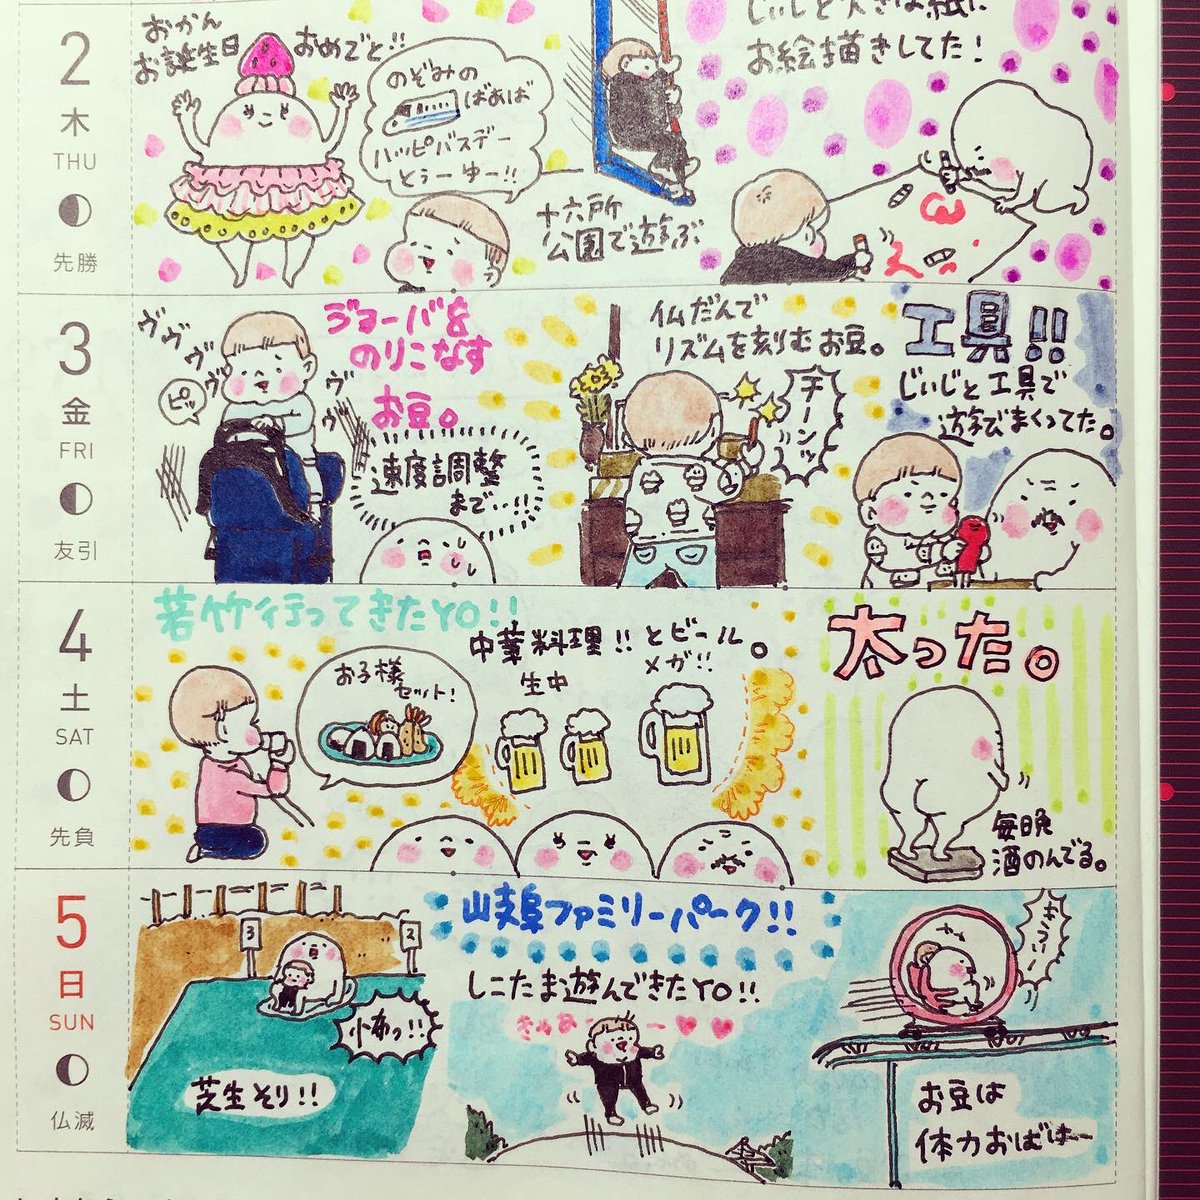 2
木
THU
先勝
おかん
お誕生日 おめでと!!
のぞみの
ばあば
ハッピバスデー
とぅーゆー!!
十六所
公園で遊ぶ
じぃじと大きな紙に
お絵描きしてた!
3
金
FRI
友引
ヴヴヴヴ
ピッ
ヴヴヴ
ジョーバを
のりこなす
お豆。
速度調整
まで…!!
仏だんで
リズムを刻むお豆。
チーンッ
工具!!
じぃじと工具で
遊びまくってた。
4
土
SAT
先負
若竹行ってきたYO!!
お子様
セット!
中華料理!!とビール。
生中
メガ!!
太った。
毎晩
酒のんでる。
5
日
SUN
仏滅
3
2
小布っ!!
芝生そり!!
岐阜ファミリーパーク!!
しこたま遊んできたYO!!
お豆は
体力おばけー